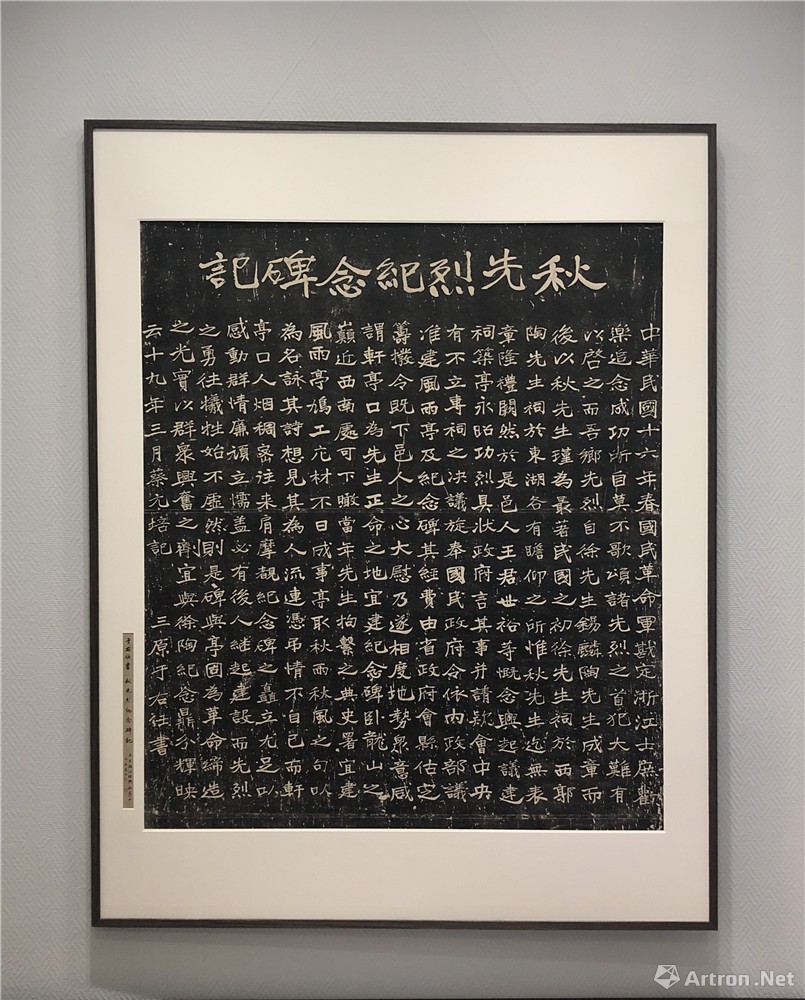 秋先烈紀念碑記
中華民國十六年春國民革命軍戡定浙江士庶歡
樂追念成功所自莫不歌頌諸先烈之首犯大難有
以啓之而吾鄉先烈自徐先生錫麟陶先生成章而
後以秋先生瑾為最著民國之初徐先生祠於西郭
陶先生祠於東湖各有瞻仰之所惟秋先生迄無表
章隆禮闕然於是邑人王君世裕等慨念興起議建
祠築亭永昭功烈具狀政府言其事并請款會中央
有不立專祠之决議旋奉國民政府令依內政部議
准建風雨亭及紀念碑其經費由省政府會縣估定
籌撥令既下邑人之心大慰乃遂相度地勢衆意咸
謂軒亭口為先生正命之地宜建紀念碑卧龍山之
巔近西南處可下瞰當年先生拘繫之典史署宜建
風雨亭鳩工庀材不日成事亭取秋雨秋風之句以
為名詠其詩想見其為人流連憑弔情不自已而軒
亭口人烟稠密往來肩摩覩紀念碑之矗立尤足以
感動群情廉頑立懦蓋必有後人継起建設而先烈
之勇往犧牲始不虛然則是碑與亭固為革命締造
之光實以群衆興奮之劑宜與徐陶紀念鼎分輝映
云十九年三月蔡元培記 三原于右任書
于右任書 秋先烈紀念碑記
Artron.Net